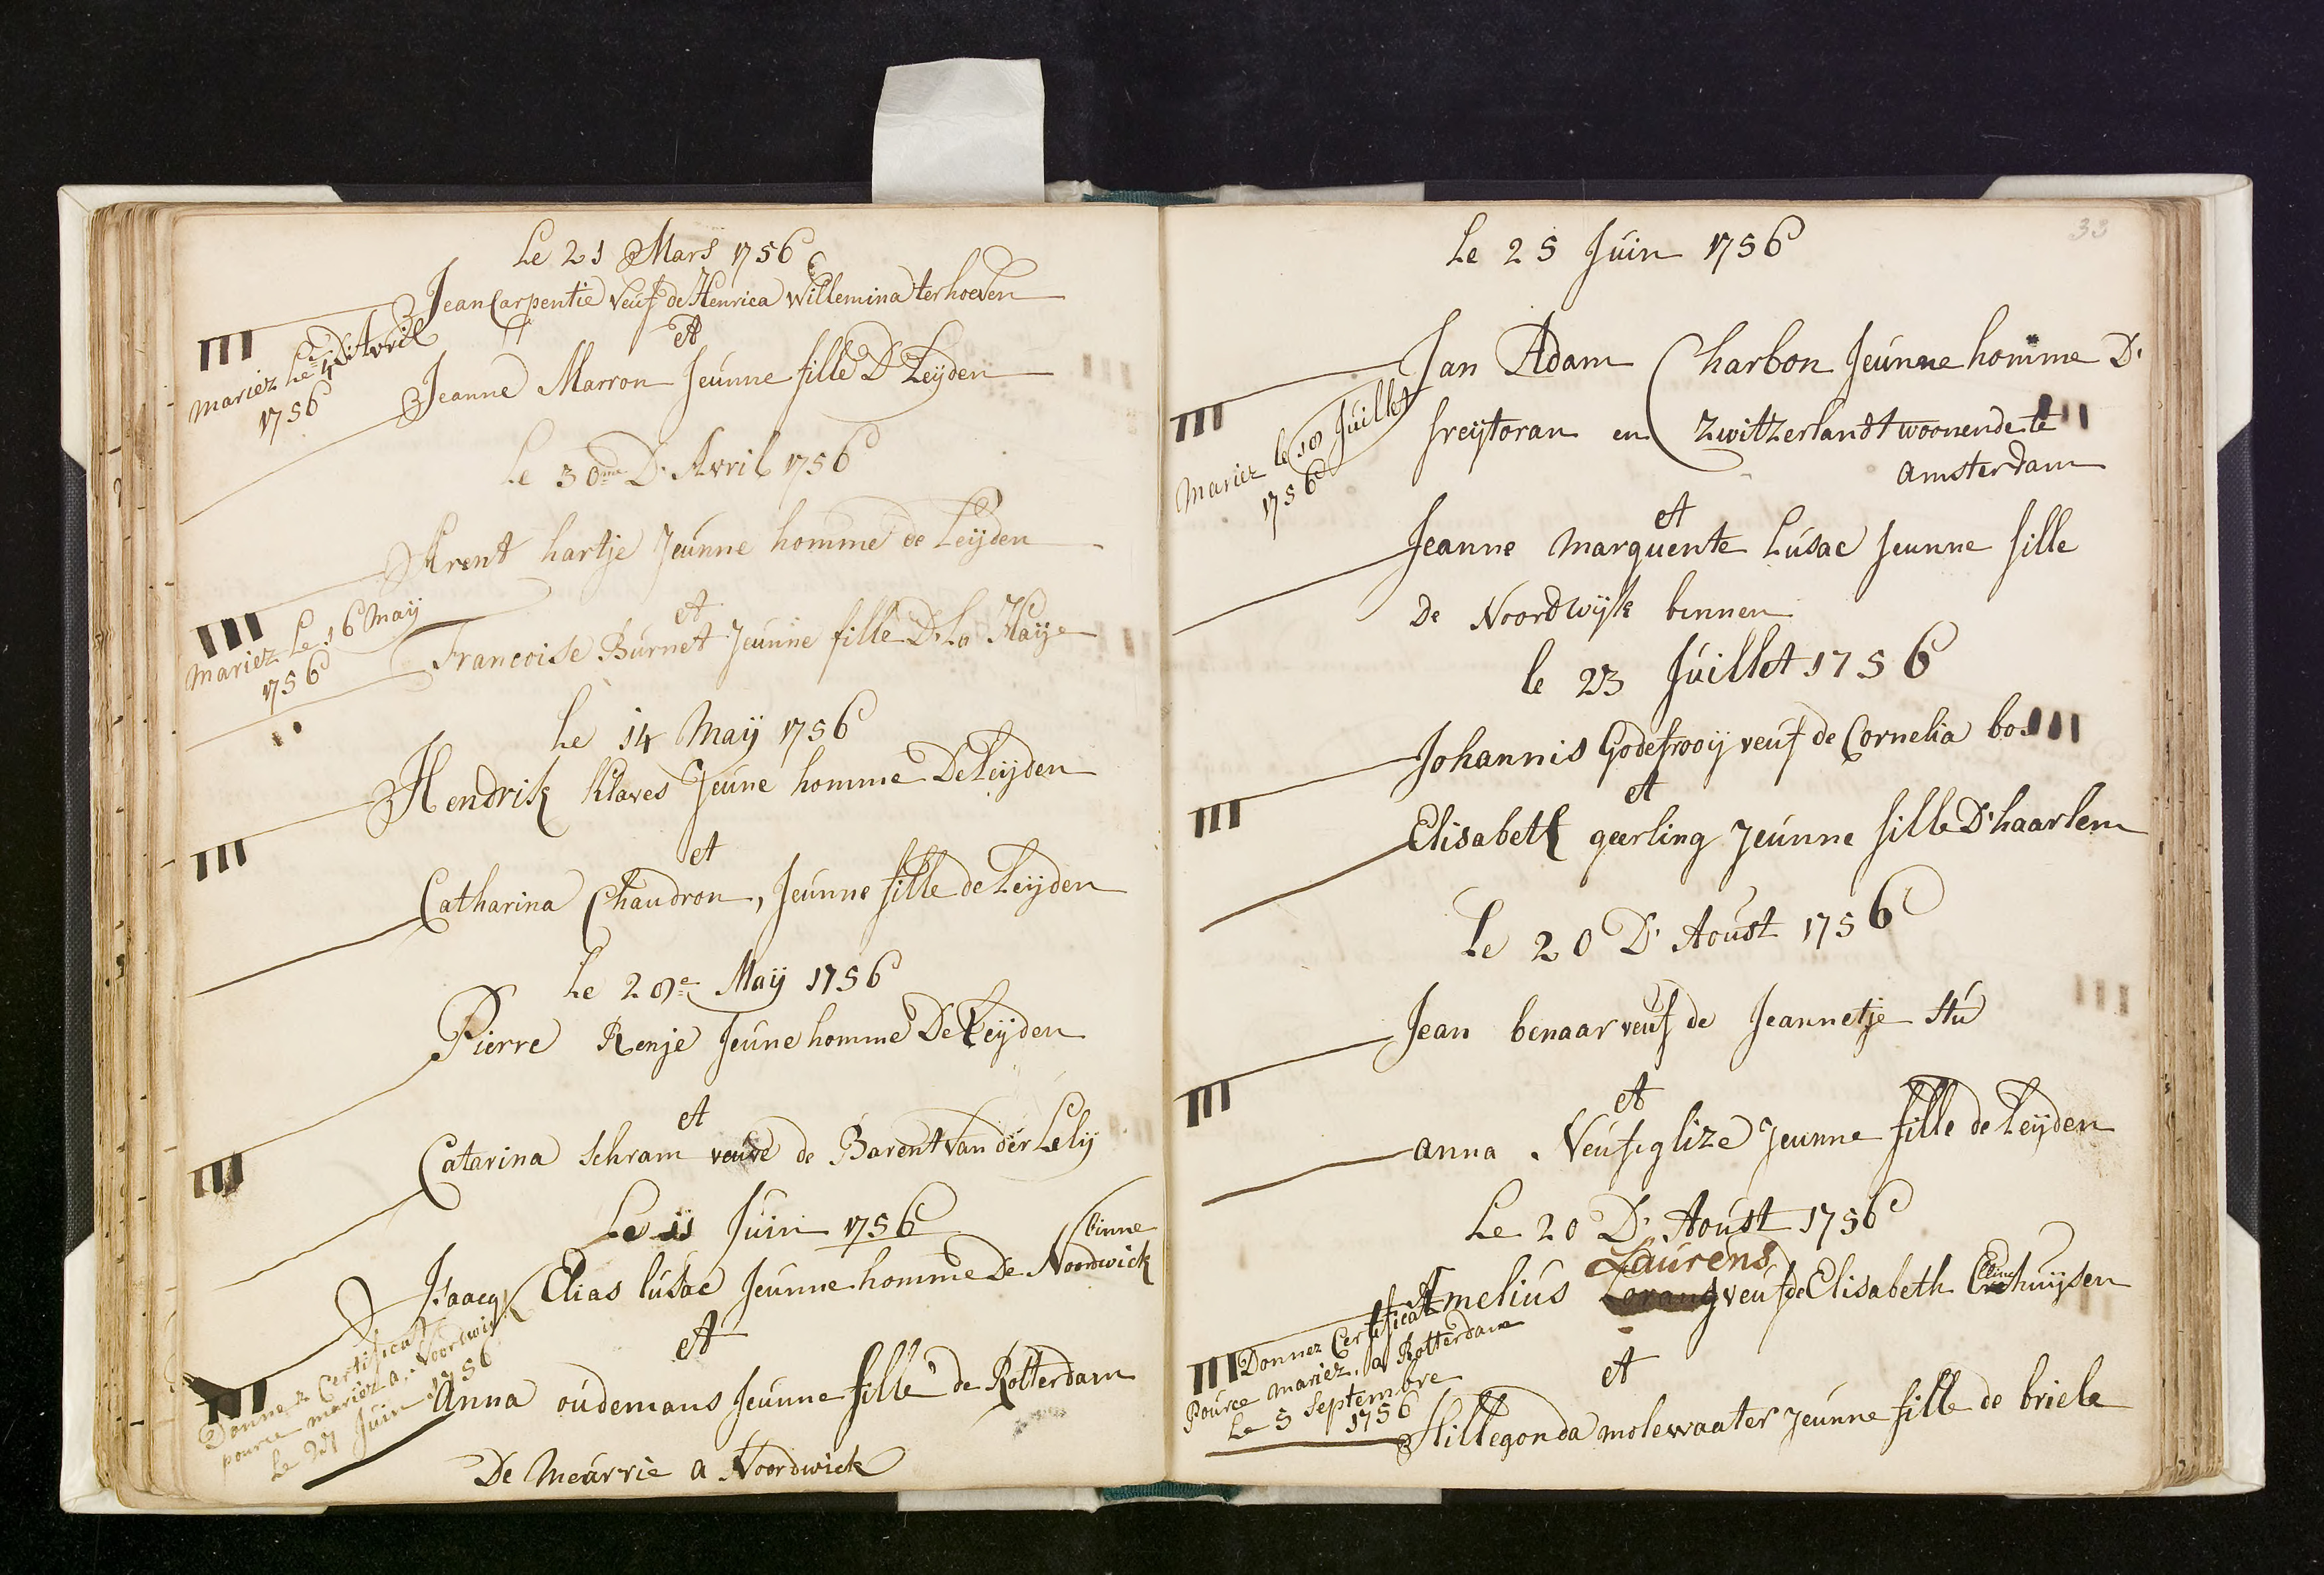 Le 21 Mars 1756
Jean Carpentié veuf de Henrica Willemina terhoeven
et
mariez Le 4 D'Avril
1756
Jeanne Marron Jeunne fille D Leyden
Le 30me D'Avril 1756
Arent hartje Jeunne homme de Leyden
et
mariez Le 16 May
1756
Francoise Burnet Jeunne fille D La Haye
Le 14 May 1756
Hendrik Klaves Jeune homme De Leyden
et
Catharina Chaudron, Jeunne fille de Leyden
Le 28e May 1756
Pierre Renje Jeune homme De Leyden
et
Catarina schram veuve de Barent van der Lely
Le 11 Juin 1756
binne
Isaacq Elias lusac Jeunne homme De Noordwick
et
Donnez Certificat
pource mariez a Noordwic
Le 27 Juin 1756
Anna oudemans Jeunne fille de Rotterdam
De meurrie a Noordwick
33
Le 25 Juin 1756
Jan Adam Charbon Jeunne homme D'
freytoran en Zwitzerlandt woonende te
amsterdam
mariez le 18 Juillet
1756
et
Jeanne marquente Lusac Jeunne fille
de Noordwijk binnen
le 23 Juillet 1756
Johannis Godefrooij veuf de Cornelia bos
et
Elisabeth geerling Jeunne fille D'haarlem
Le 20 D'Aoust 1756
Jean benaar veuf de Jeannetje Stu
et
anna Neufeglize Jeunne fille de Leyden
Le 20 D'Aoust 1756
Laurens
Amelius Lorang veuf de Elisabeth huijsen
Donnez Certificat
Pource mariez a Rotterdam
Le 5 Septembre
1756
et
Hillegonda molewaater Jeunne fille de briele